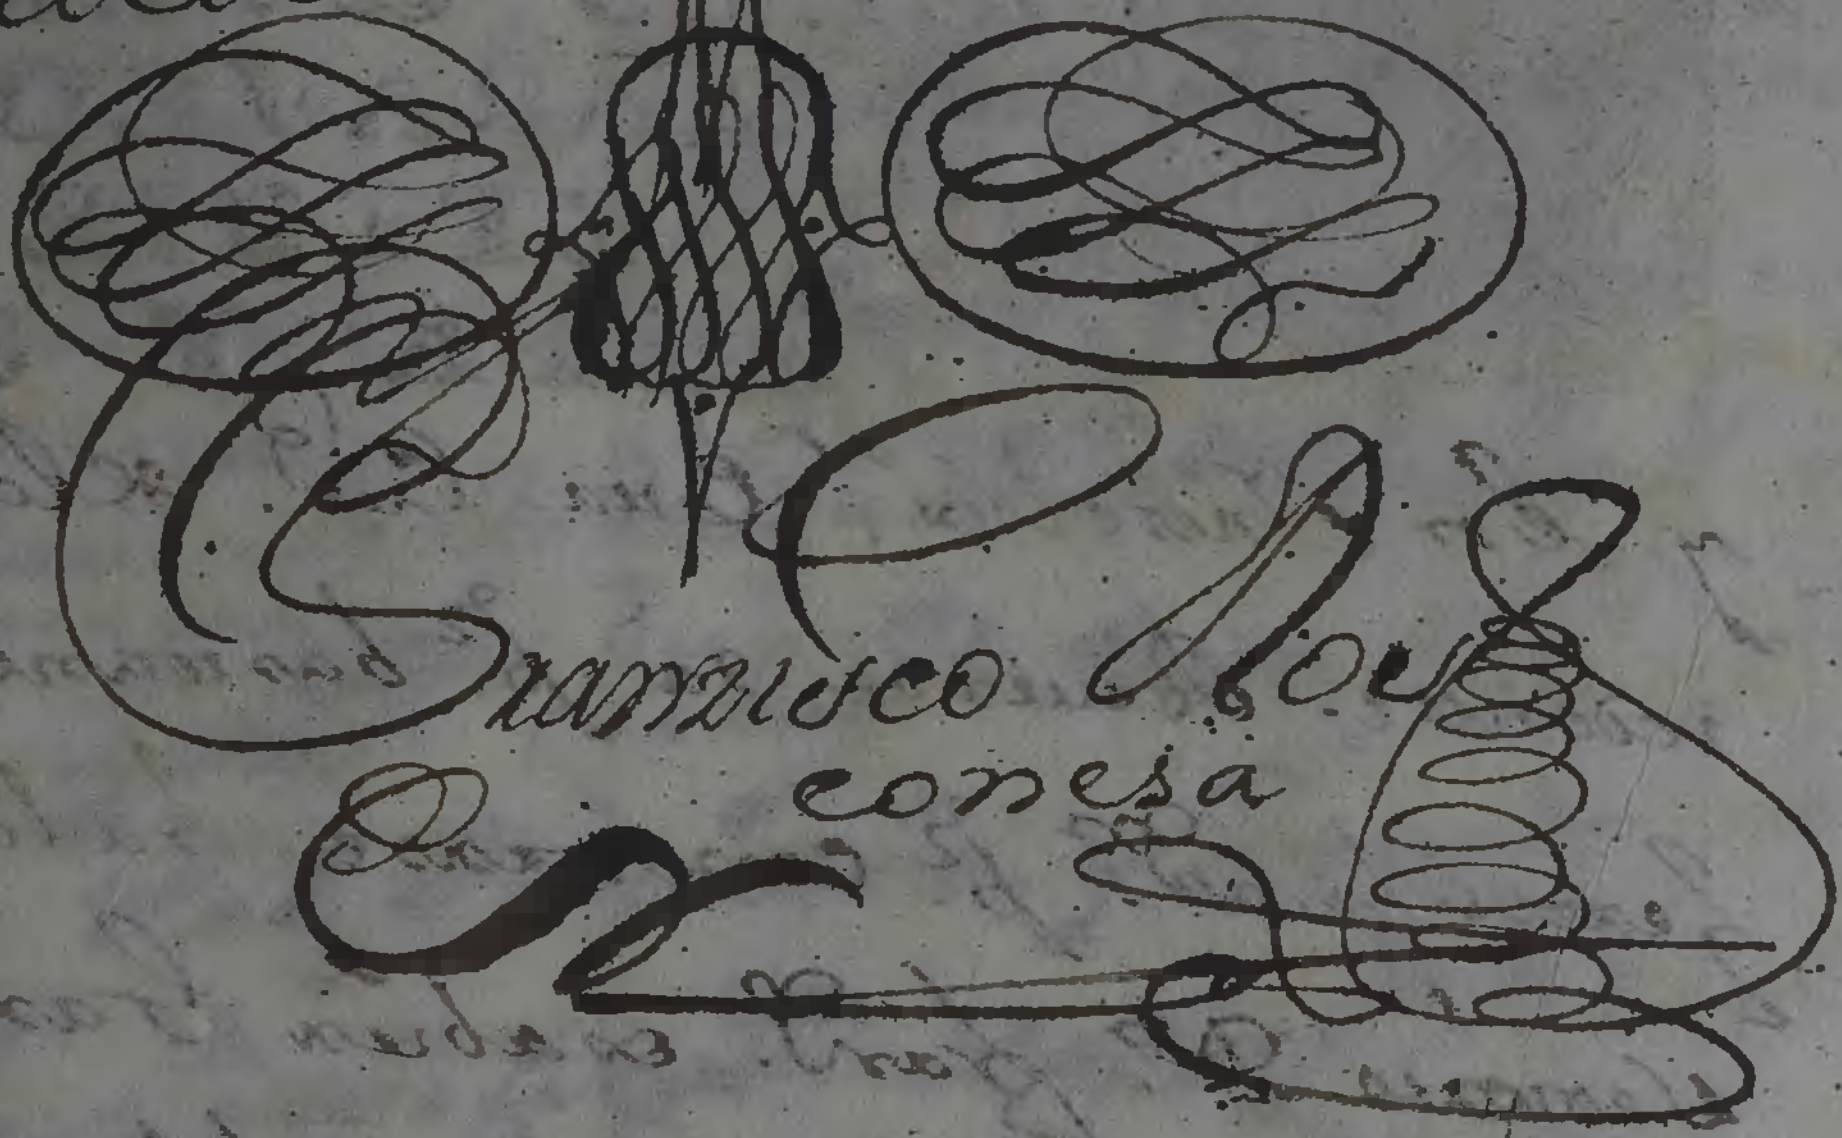 Franzisco Ros
conesa